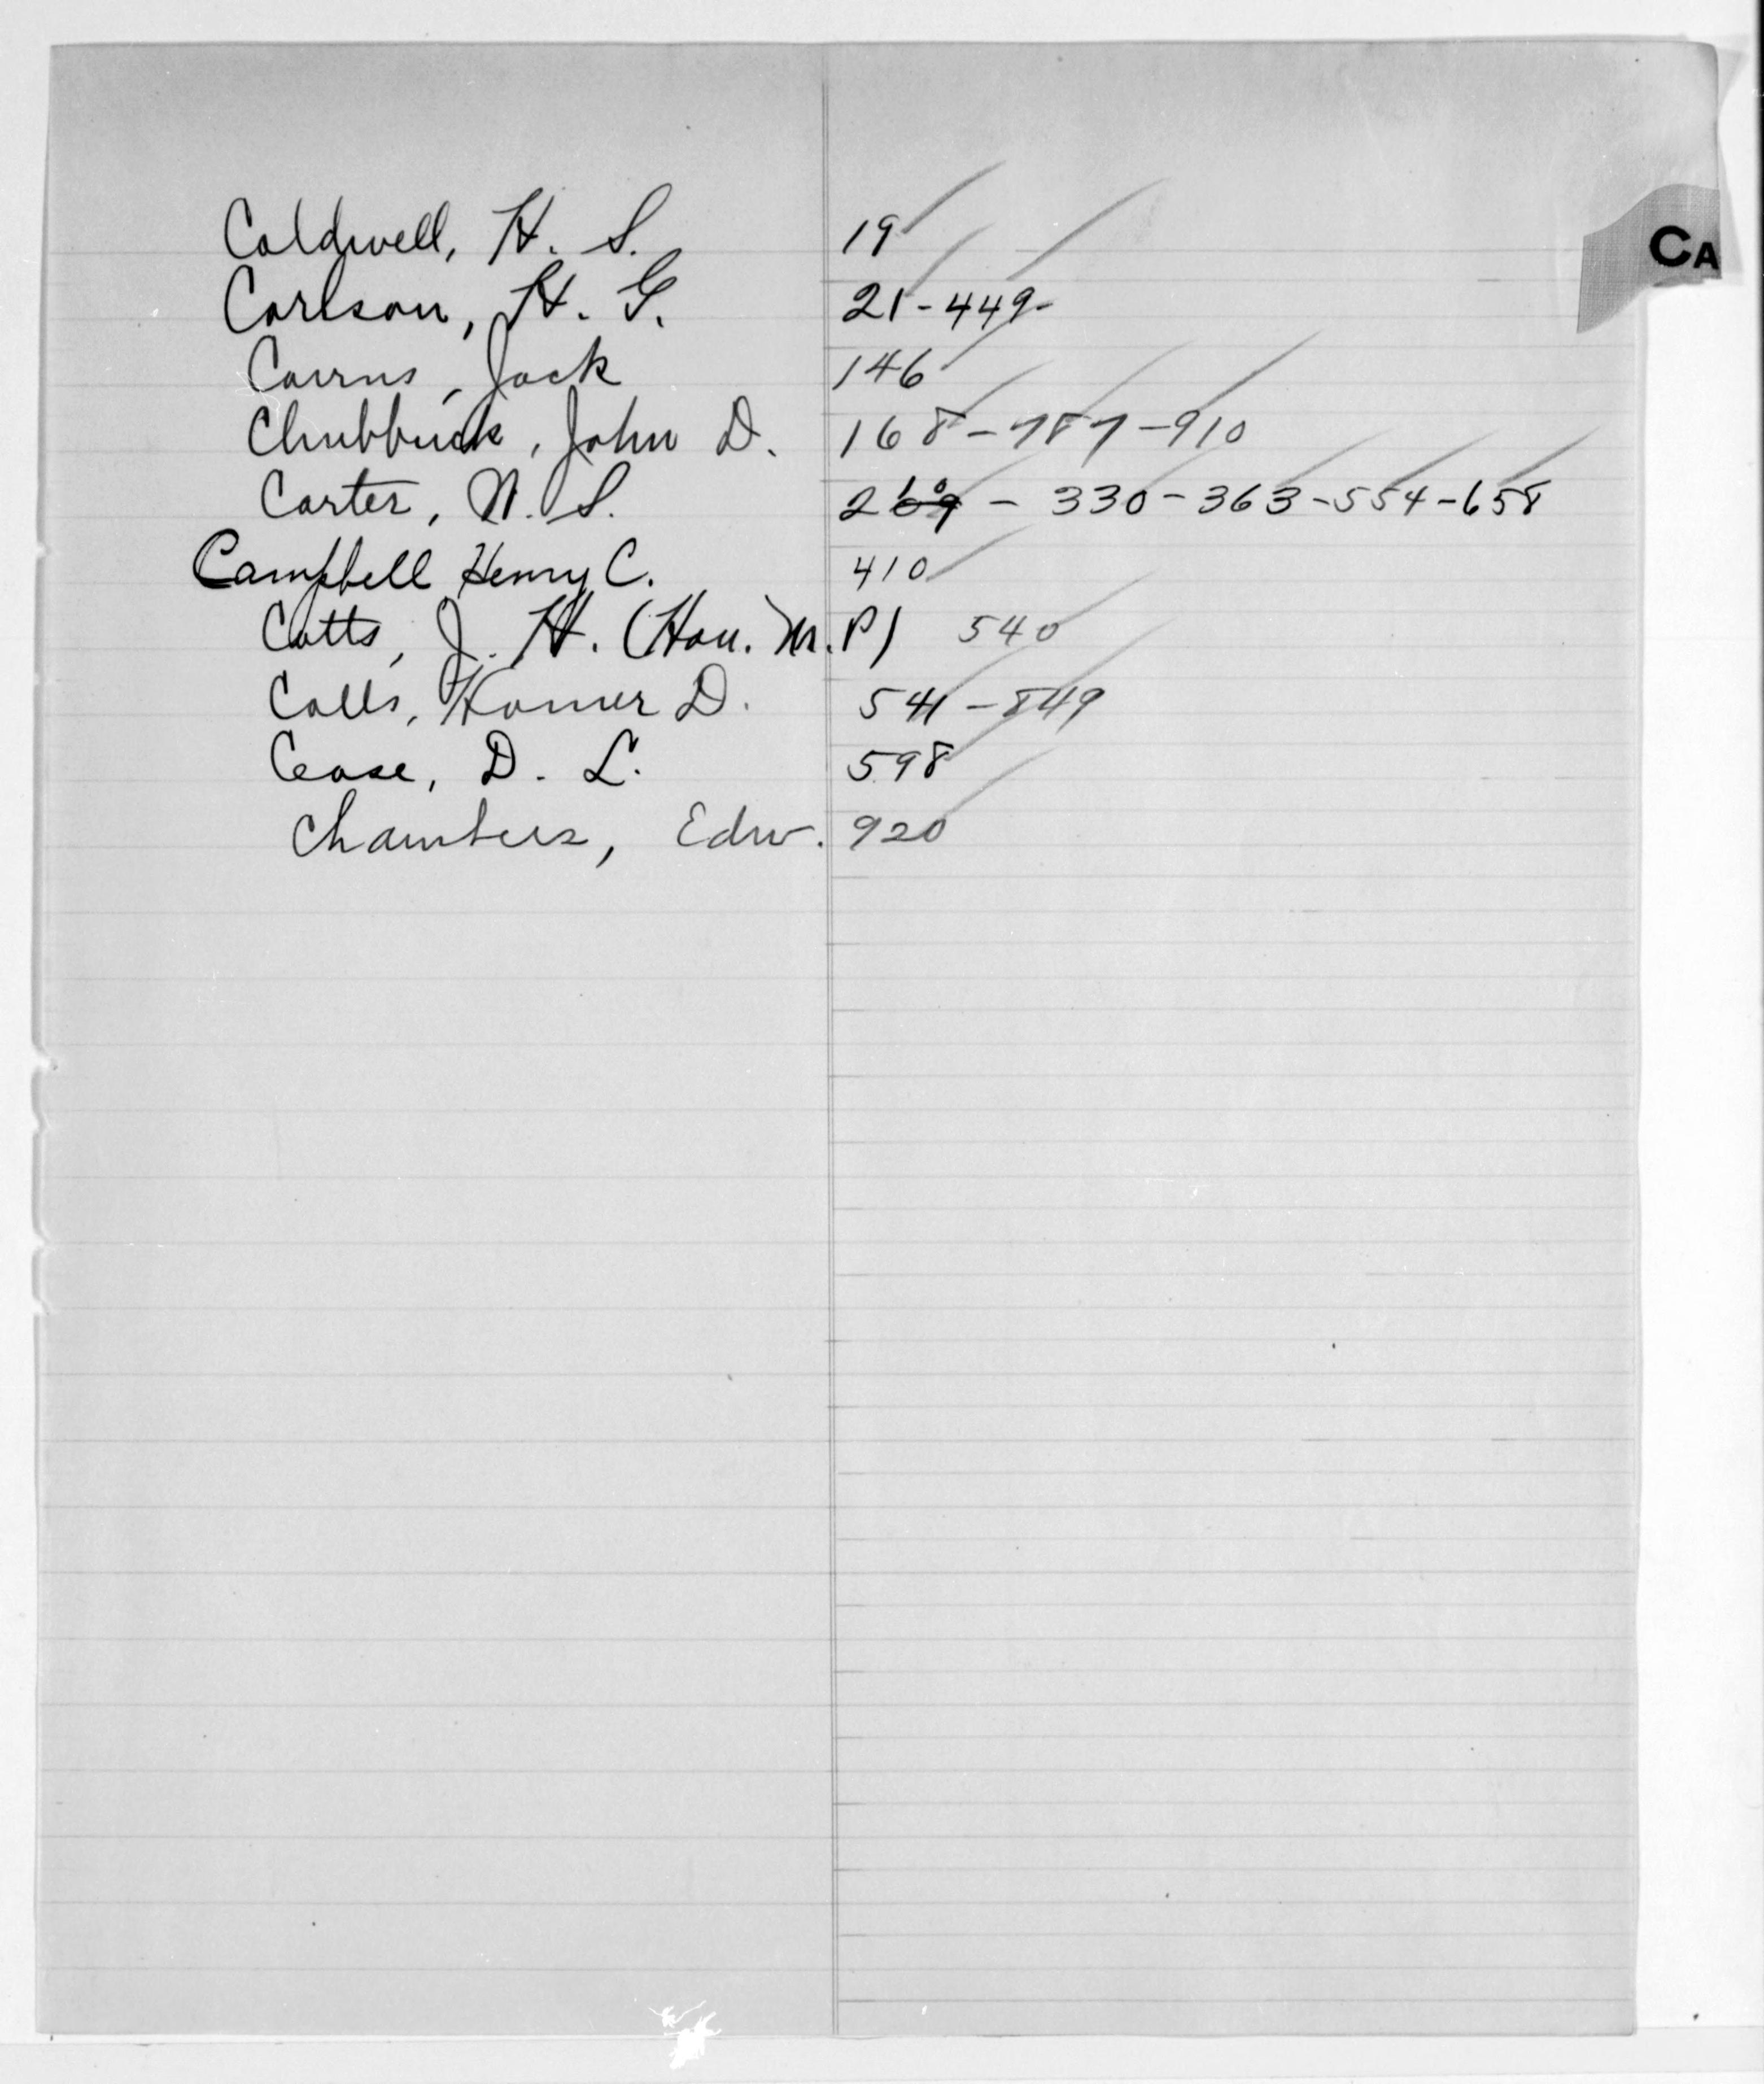 CA
Caldwell, H. S. 19
Carlson, H. G. 21-449-
Cairns, Jack 146
Chubbuck, John D. 168-787-910
Carter, W. S. 21009 - 330-363-554-658
Campbell Henry C. 410
Catts, J. H. (Hon. M.P) 540
Calls, Homer D. 541-849
Cease, D. L. 598
Chambers, Edw. 920